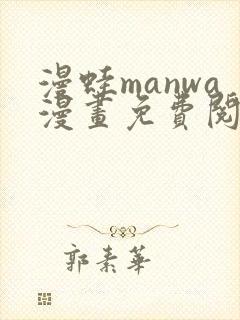 漫蛙manwa
漫畫免費閱
郭素華